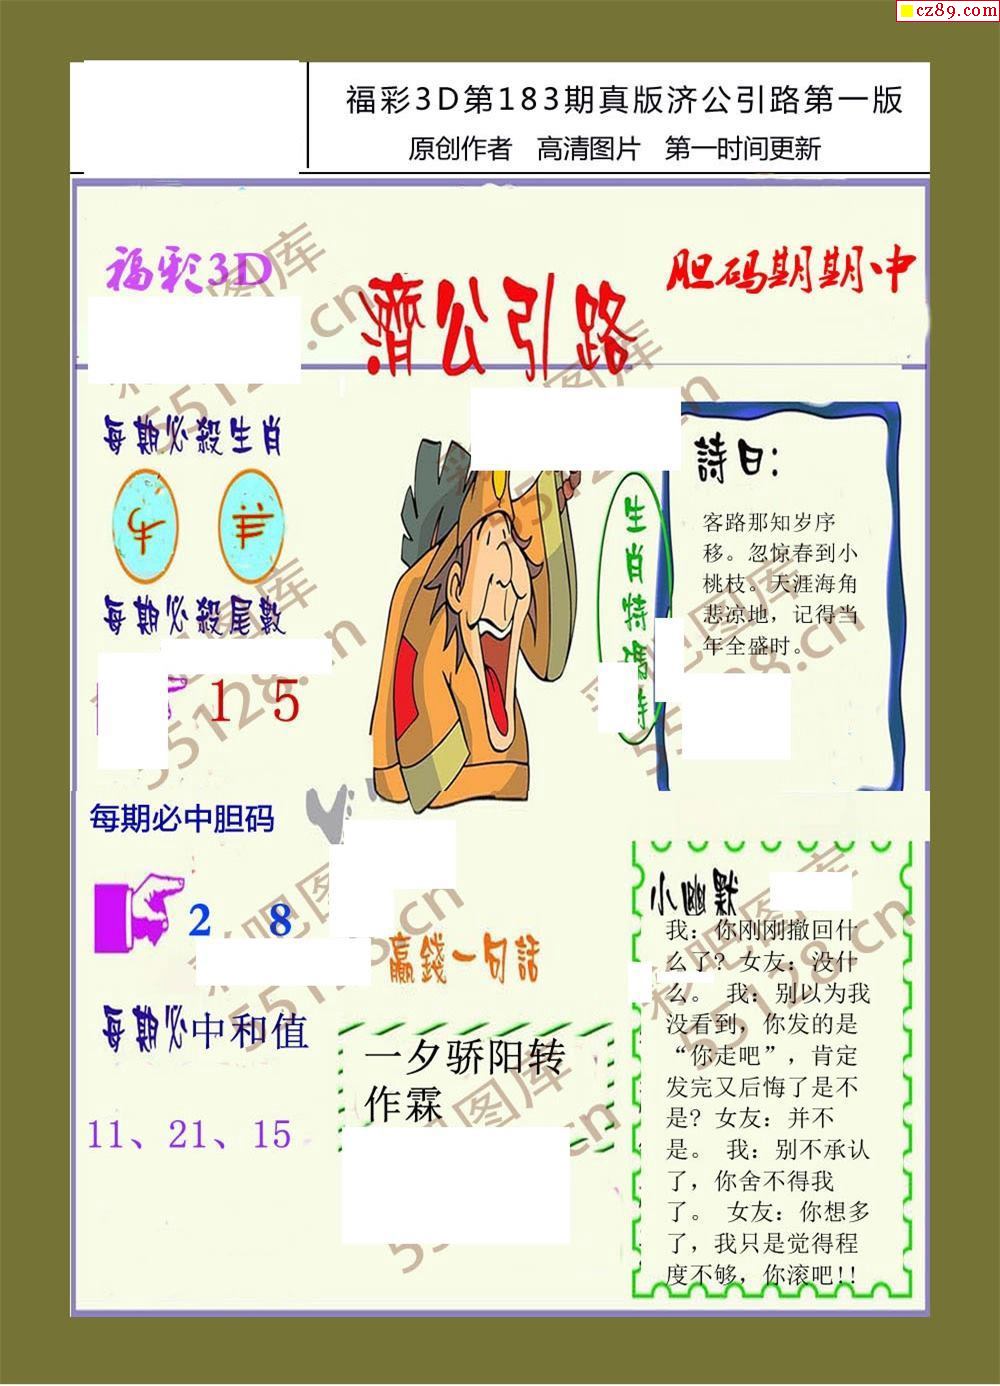 cz89.com
福彩3D第183期真版济公引路第一版
原创作者 高清图片 第一时间更新
福彩3D
胆码期期中
濟公引路
每期必殺生肖
牛 羊
每期必殺尾數
1 5
每期必中胆码
2 8
每期必中和值
11、21、15
生肖特碼詩
詩曰:
客路那知岁序
移。忽惊春到小
桃枝。天涯海角
悲凉地，记得当
年全盛时。
赢錢一句話
一夕骄阳转
作霖
小幽默
我：你刚刚撤回什
么了？女友：没什
么。 我：别以为我
没看到，你发的是
“你走吧”，肯定
发完又后悔了是不
是？女友：并不
是。 我：别不承认
了，你舍不得我
了。 女友：你想多
了，我只是觉得程
度不够，你滚吧!!
彩吧图库
55128.cn